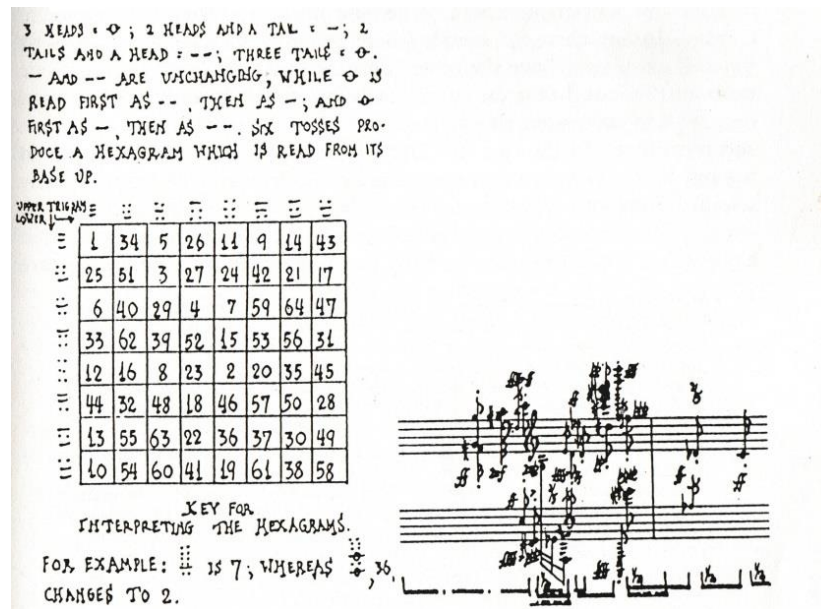 3 HEADS = -o-; 2 HEADS AND A TAIL = —; 2
TAILS AND A HEAD = --; THREE TAILS = -o-.
— AND -- ARE UNCHANGING, WHILE -o- IS
READ FIRST AS --, THEN AS —; AND -o-
FIRST AS —, THEN AS --. SIX TOSSES PRO-
DUCE A HEXAGRAM WHICH IS READ FROM ITS
BASE UP.
UPPER TRIGRAMS
LOWER
1 34 5 26 11 9 14 43
25 51 3 27 24 42 21 17
6 40 29 4 7 59 64 47
33 62 39 52 15 53 56 31
12 16 8 23 2 20 35 45
44 32 48 18 46 57 50 28
13 55 63 22 36 37 30 49
10 54 60 41 19 61 38 58
KEY FOR
INTERPRETING THE HEXAGRAMS.
FOR EXAMPLE: IS 7; WHEREAS , 36,
CHANGES TO 2.